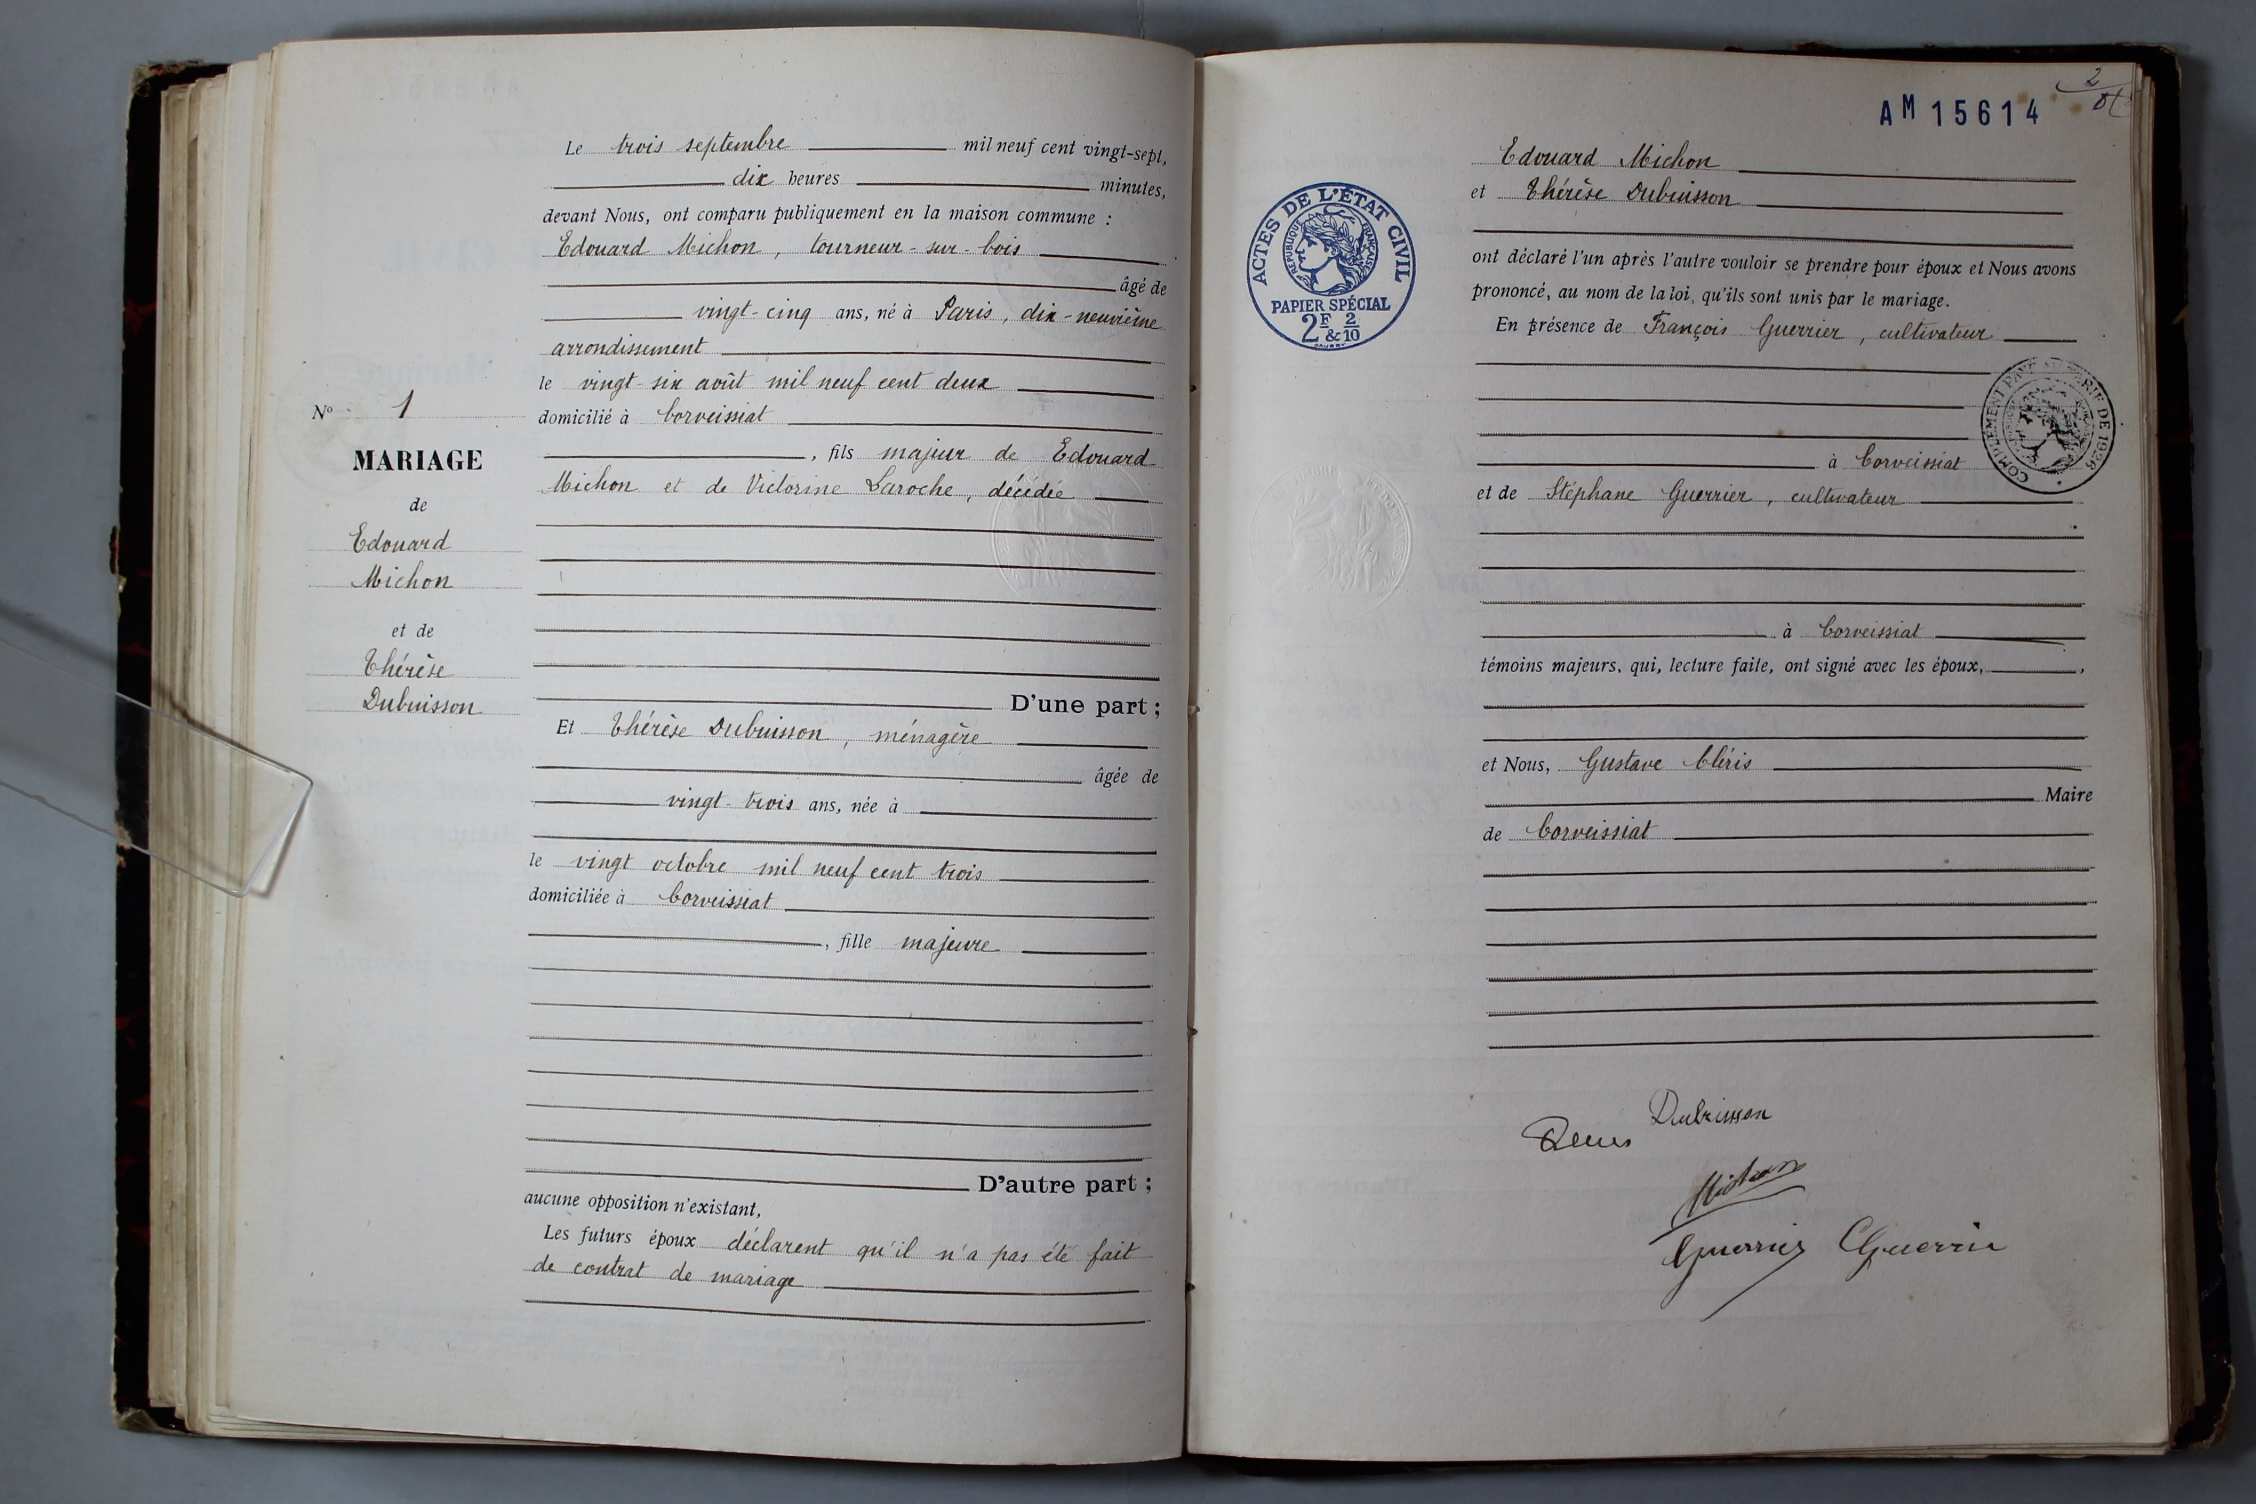 Le trois septembre mil neuf cent vingt-sept,
dix heures minutes,
devant Nous, ont comparu publiquement en la maison commune :
Edouard Michon, tourneur-sur-bois
âgé de
vingt-cinq ans, né à Paris, dix-neuvième
arrondissement
le vingt-six août mil neuf cent deux
domicilié à Corveissiat
, fils majeur de Edouard
Michon et de Victorine Laroche, décédée
D'une part ;
Et Thérèse Dubuisson, ménagère
âgée de
vingt-trois ans, née à
le vingt octobre mil neuf cent trois
domiciliée à Corveissiat
, fille majeure
D'autre part ;
aucune opposition n'existant,
Les futurs époux déclarent qu'il n'a pas été fait
de contrat de mariage
No 1
MARIAGE
de
Edouard
Michon
et de
Thérèse
Dubuisson
2
AM 15614
ACTES DE L'ÉTAT CIVIL
RÉPUBLIQUE FRANÇAISE
PAPIER SPÉCIAL
2F & 2/10
Edouard Michon
et Thérèse Dubuisson
ont déclaré l'un après l'autre vouloir se prendre pour époux et Nous avons
prononcé, au nom de la loi, qu'ils sont unis par le mariage.
En présence de François Guerrier, cultivateur
COMPLÉMENT PAYÉ AU TARIF DE 1926
à Corveissiat
et de Stéphane Guerrier, cultivateur
à Corveissiat
témoins majeurs, qui, lecture faite, ont signé avec les époux, ,
et Nous, Gustave Cléris
Maire
de Corveissiat
Dubuisson
Michon
Guerrier Guerrier